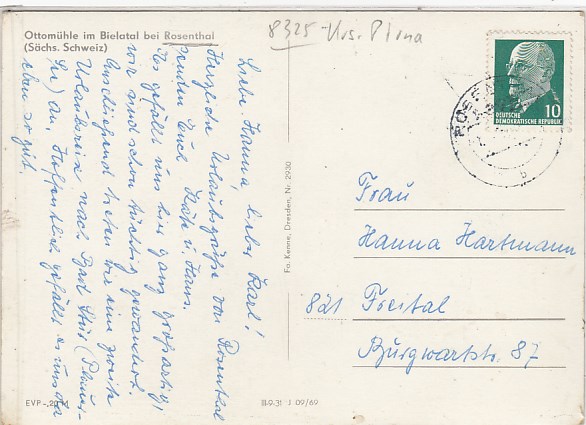 Ottomühle im Bielatal bei Rosenthal
(Sächs. Schweiz)
8325 - Krs. Pirna
10
DEUTSCHE
DEMOKRATISCHE REPUBLIK
Liebe Hanna, lieber Karl!
Herzliche Urlaubsgrüße von Rosenthal
senden Euch Käte u. Hans.
Es gefällt uns hier ganz großartig,
wir sind schon tüchtig gewandert.
Anschließend treten wir eine zweite
Urlaubsreise nach Bad
See) an. Hoffentlich gefällt es uns da
eben so gut.
Fa. Kenne, Dresden, Nr. 2930
Frau
Hanna Hartmann
821 Freital
Burgwartstr. 87
EVP -,20 M
III-9-31 J 09/69